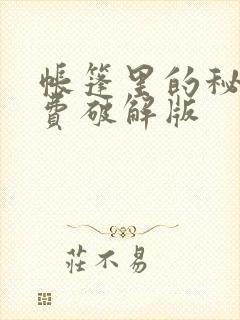 帳篷里的秘
費破解版
莊不易